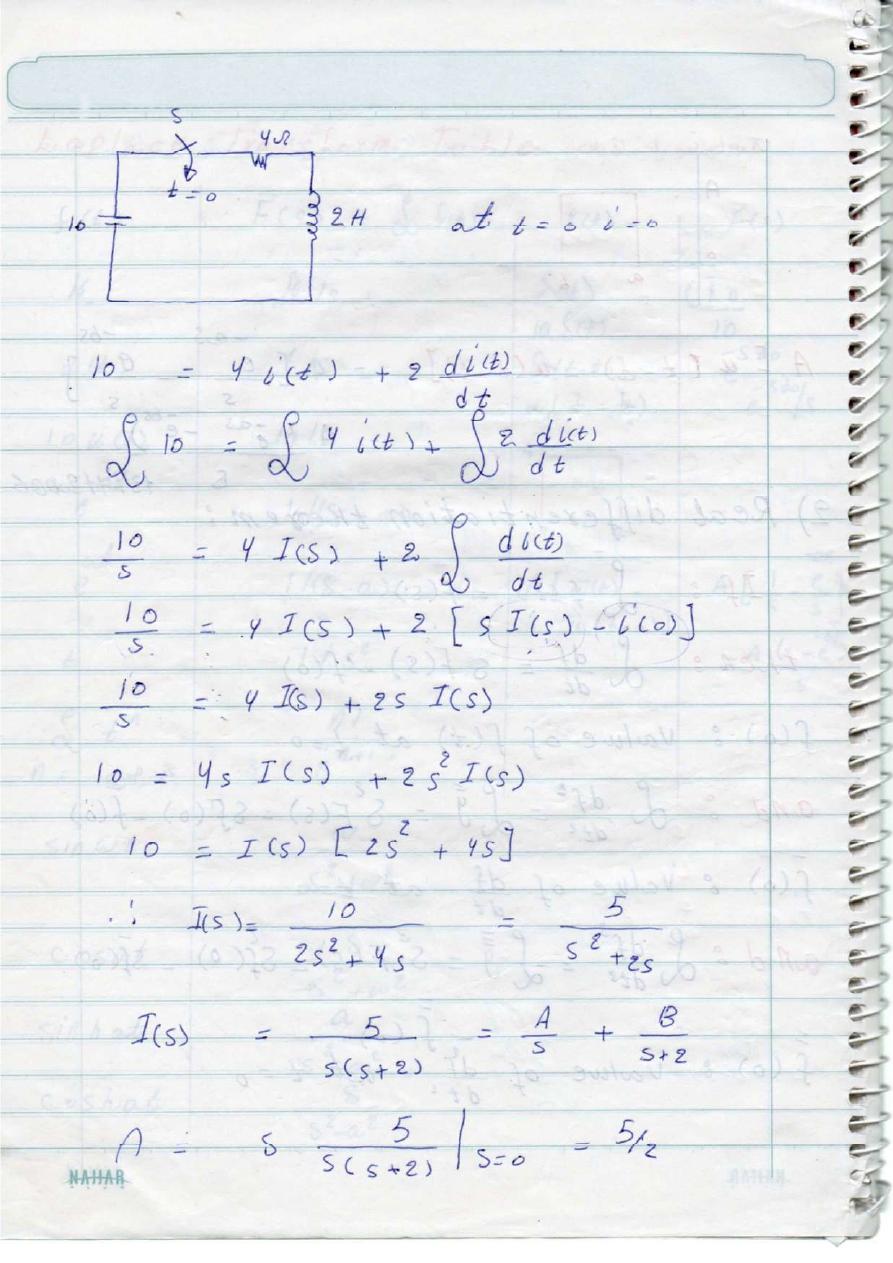 S
4Ω
t = 0
10
2H
at t = 0 i = 0
10 = 4 i(t) + 2 di(t)/dt
ℒ 10 = ℒ 4 i(t) + ℒ 2 di(t)/dt
10/s = 4 I(s) + 2 ℒ di(t)/dt
10/s = 4 I(s) + 2 [ s I(s) - i(0)]
10/s = 4 I(s) + 2s I(s)
10 = 4s I(s) + 2s² I(s)
10 = I(s) [ 2s² + 4s]
∴ I(s) = 10/(2s² + 4s) = 5/(s² + 2s)
I(s) = 5/(s(s+2)) = A/s + B/(s+2)
A = s 5/(s(s+2)) | s=0 = 5/2
NAHAR